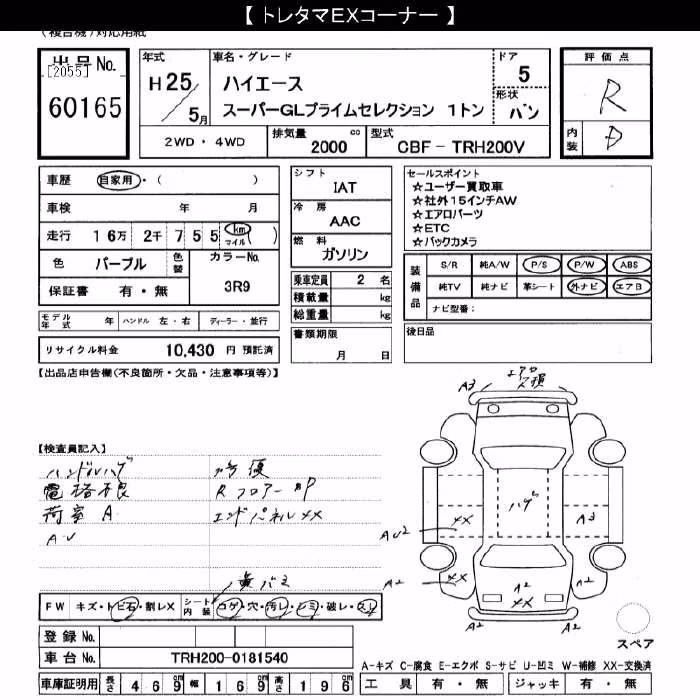 【 トレタマEXコーナー 】
(複合機)対応用紙
出品No.
[2055]
60165
年式
H25/5月
車名・グレード
ハイエース
スーパーGLプライムセレクション 1トン
ドア
5
形状
バン
評価点
R
内装
D
2WD・4WD
排気量
2000 cc
型式
CBF-TRH200V
車歴 自家用・( )
車検 年 月
走行 16万 2千 755 km マイル ( )
色 パープル
色替
カラーNo.
3R9
保証書 有・無
シフト
IAT
冷房
AAC
燃料
ガソリン
乗車定員 2 名
積載量 kg
総重量 kg
セールスポイント
☆ユーザー買取車
☆社外15インチAW
☆エアロパーツ
☆ETC
☆バックカメラ
装備品
S/R 純A/W P/S P/W ABS
純TV 純ナビ 革シート 外ナビ エアB
ナビ型番:
モデル年式 年 ハンドル 左・右 ディーラー・並行
リサイクル料金 10,430 円 預託済
書類期限
月 日
後日品
【出品店申告欄(不良箇所・欠品・注意事項等)】
【検査員記入】
ハンドルハゲ
電格不良
荷室 A
AU
Rフロアー
エンドパネルXX
エアロ欠損
A3
ハゲ
A3
XX
AU2
A2
XX
A2
XX
A2
FW キズ・トビ石・割レX
シート内装 コゲ・穴・汚レ・シミ・破レ・スレ
登録No.
車台No. TRH200-0181540
車庫証明用 長さ 469cm 幅 169cm 高さ 196cm
スペア
A-キズ C-腐食 E-エクボ S-サビ U-凹ミ W-補修 XX-交換済
工具 有・無 ジャッキ 有・無